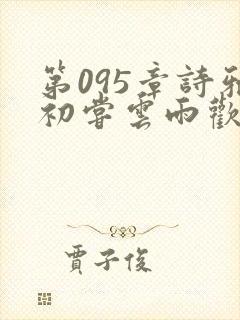 第095章詩雅
初嘗雲雨歡
賈子俊